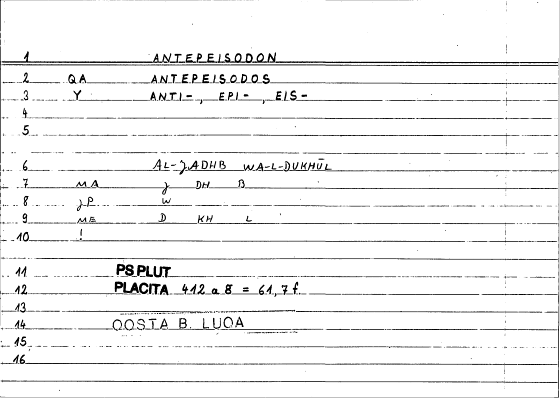 1 ANTEPEISODON
2 QA ANTEPEISODOS
3 Y ANTI-, EPI-, EIS-
4
5
6 AL-ǮADHB WA-L-DUKHŪL
7 MA DH B
8 W
9 ME D KH L
10 !
11 PS PLUT
12 PLACITA 412 a 8 = 61,7 f.
13
14 OOSTA B. LUOA
15
16